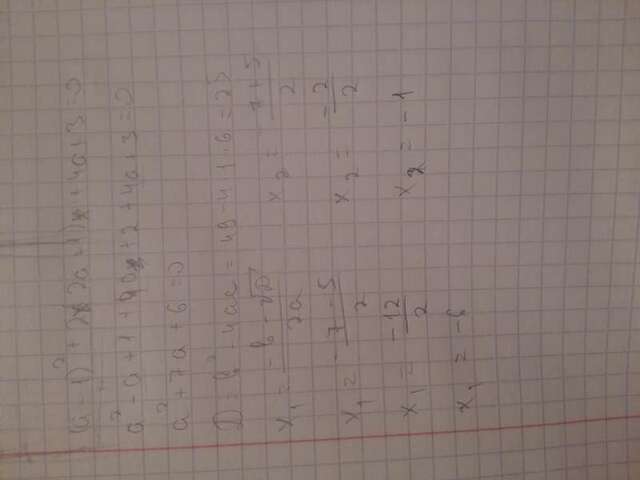 (a-1)² + 2(2a+1)x + 4a+3=0
a² - a + 1 + 4ax + 2 + 4a + 3 = 0
a² + 7a + 6 = 0
D = b² - 4ac = 49 - 4·1·6 = 25
x₁ = -b-√D / 2a x₂ = -7+5 / 2
x₁ = -7-5 / 2 x₂ = -2 / 2
x₁ = -12 / 2 x₂ = -1
x₁ = -6